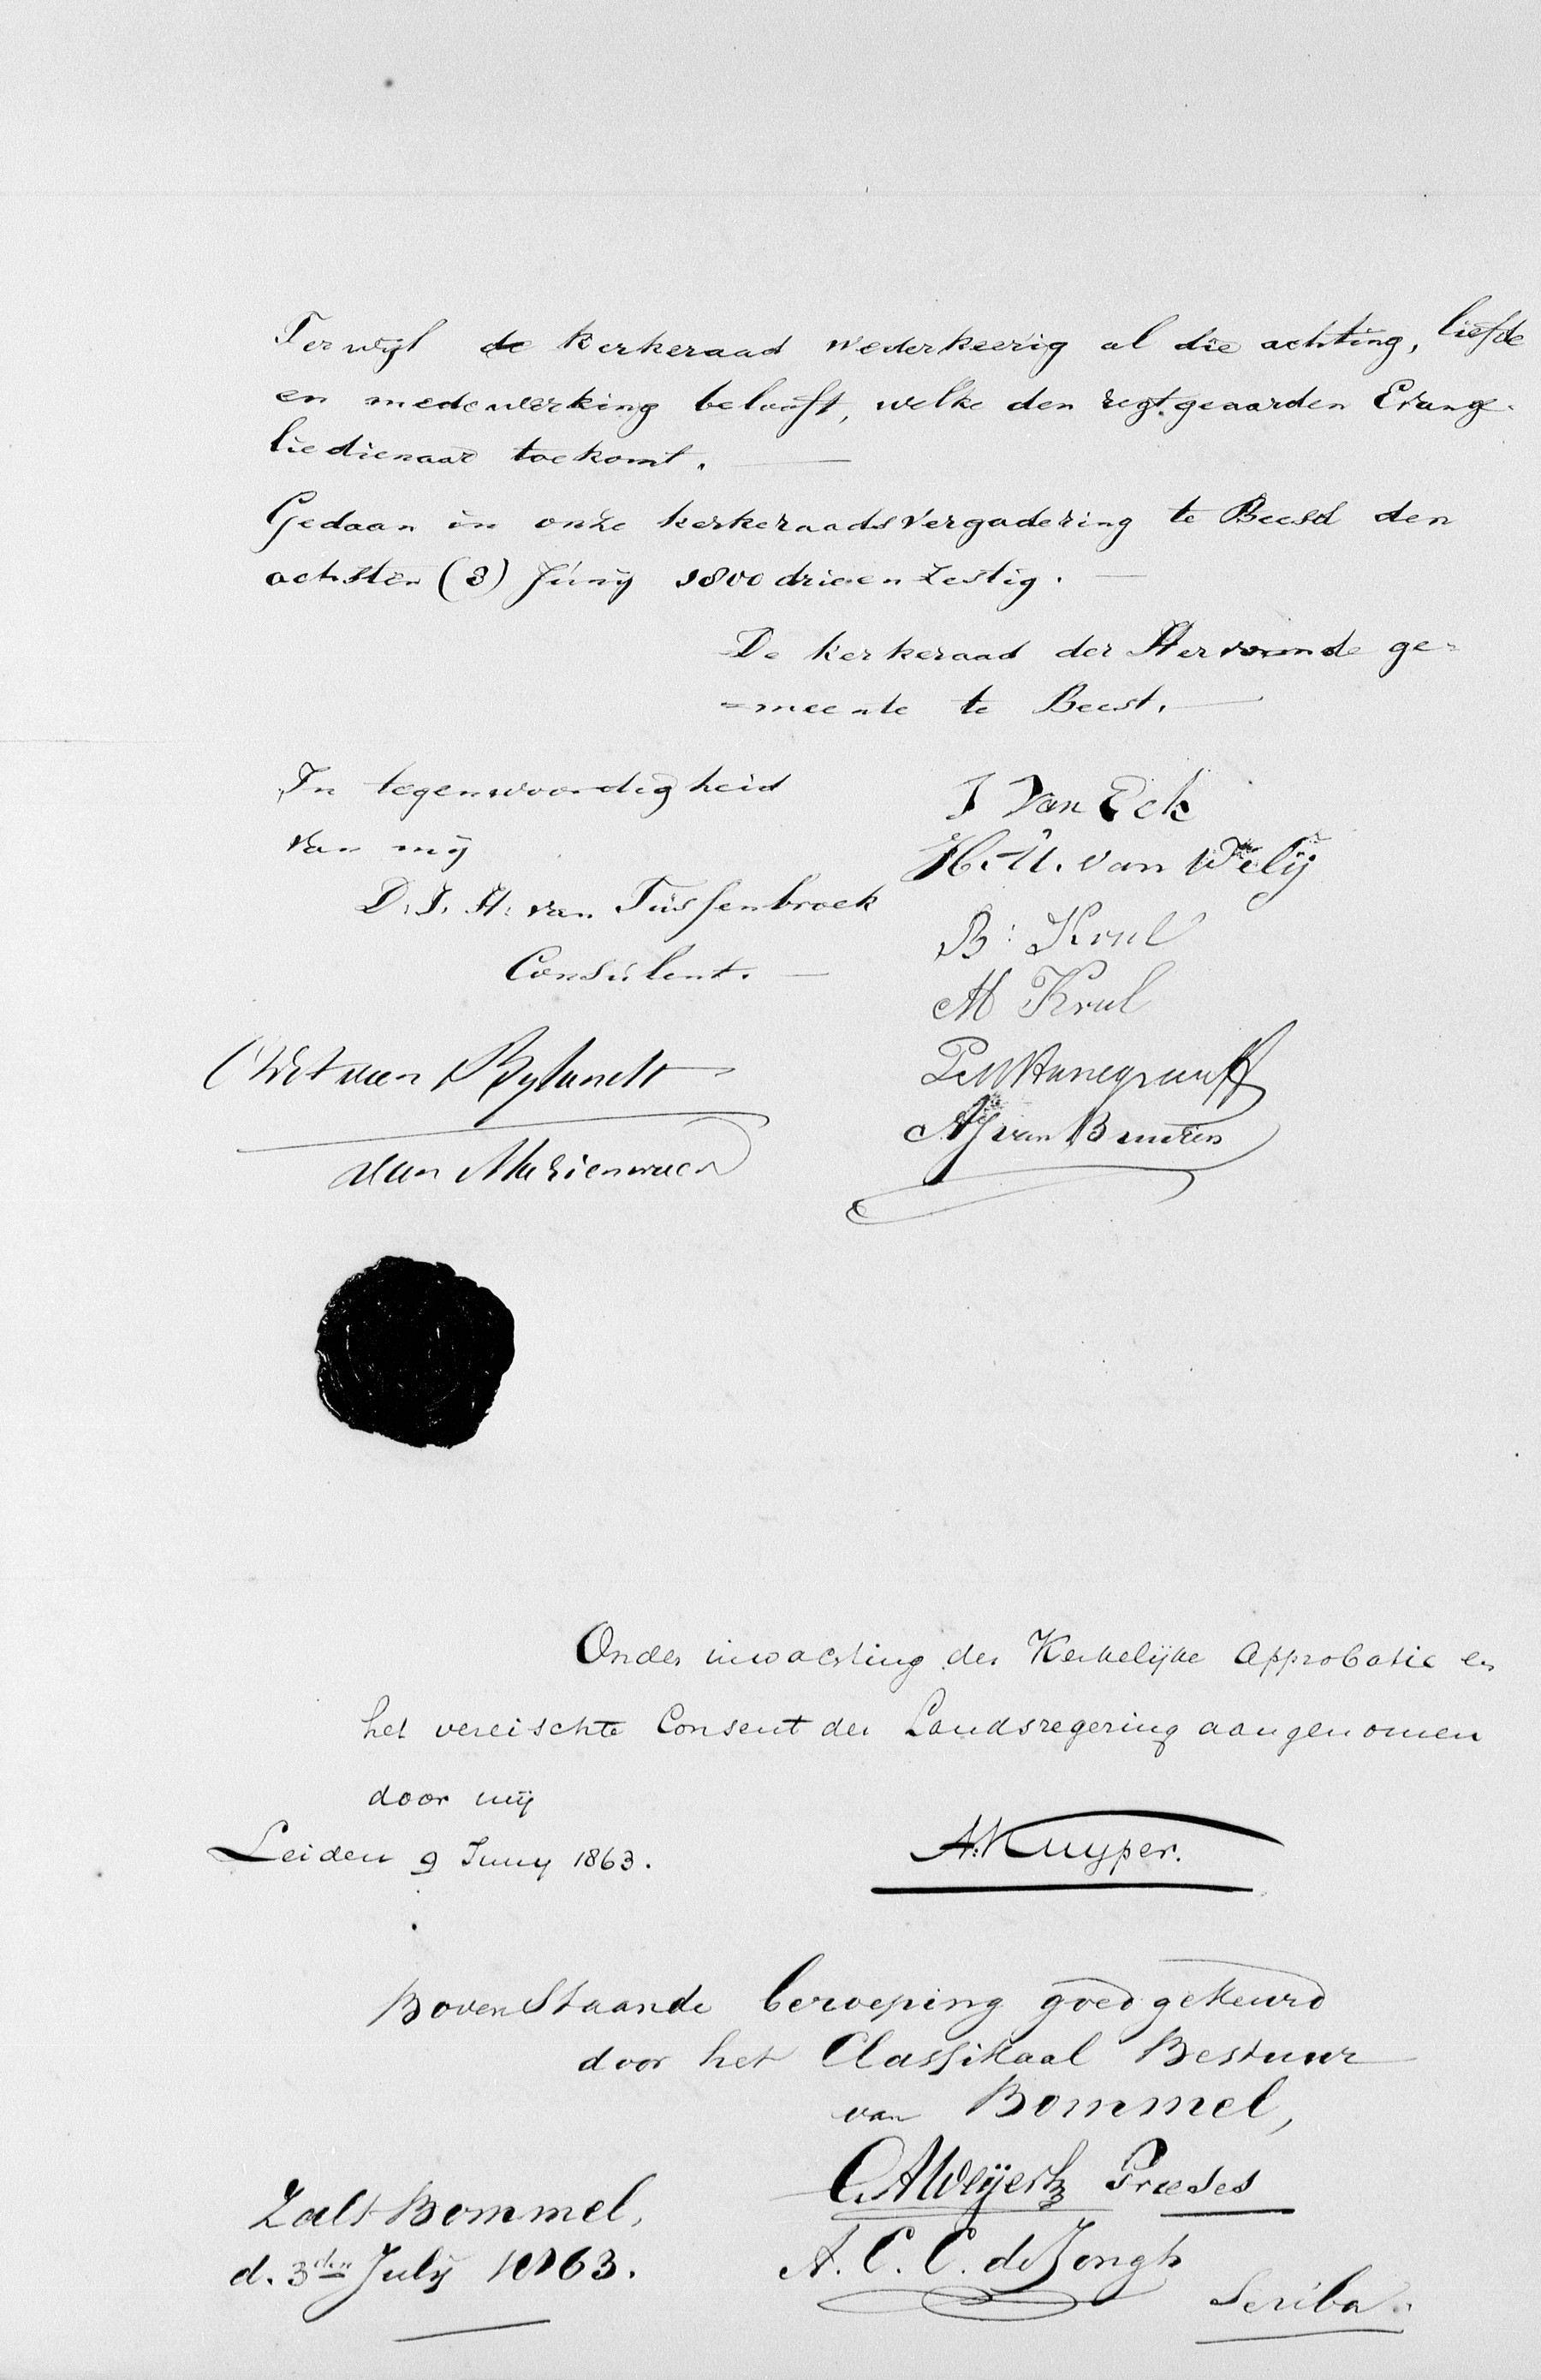 Terwijl de kerkeraad wederkeerig al die achting, liefde
en medewerking belooft, welke den regtgeaarden Evange-
liedienaar toekomt.
Gedaan in onze kerkeraadsvergadering te Beesd den
achtsten (8) Junij 1800 drieenzestig.
De kerkeraad der Hervormde ge=
=meente te Beest.
In tegenwoordigheid
van mij
D. J. H. van Tussenbroek
Consulent.
J van Eck
H. U. van Welij
B: Krul
M Krul
van Bylandt
van Mariënwaerd
Hanegraaff
van Buuren
Onder inwachting der Kerkelijke Approbatie en
het vereischte Consent der Landsregering aangenomen
door mij
Leiden 9 Juny 1863.
A. Kuyper.
Bovenstaande beroeping goedgekeurd
door het Classikaal Bestuur
van Bommel,
Zalt-Bommel,
d. 3den July 1863.
Praeses
A. C. C. de Jongh
Scriba.